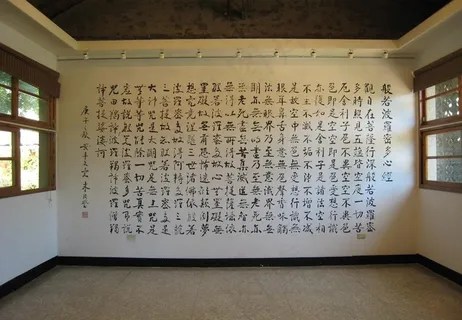 般若波羅密多心經
觀自在菩薩行深般若波羅密
多時照見五蘊皆空度一切苦
厄舍利子色不異空空不異色
色即是空空即是色受想行識
亦復如是舍利子是諸法空相
不生不滅不垢不淨不增不減
是故空中無色無受想行識無
眼耳鼻舌身意無色聲香味觸
法無眼界乃至無意識界無無
明亦無無明盡乃至無老死亦
無老死盡無苦集滅道無智亦
無得以無所得故菩提薩埵依
般若波羅密多故心無罣礙無
罣礙故無有恐怖遠離顛倒夢
想究竟涅槃三世諸佛依般若
波羅密多故得阿耨多羅三藐
三菩提故知般若波羅密多是
大神咒是大明咒是無上咒是
無等等咒能除一切苦真實不
虛故說般若波羅密多咒即說
咒曰揭諦揭諦波羅揭諦波羅僧揭
諦菩提薩婆訶
庚子秋